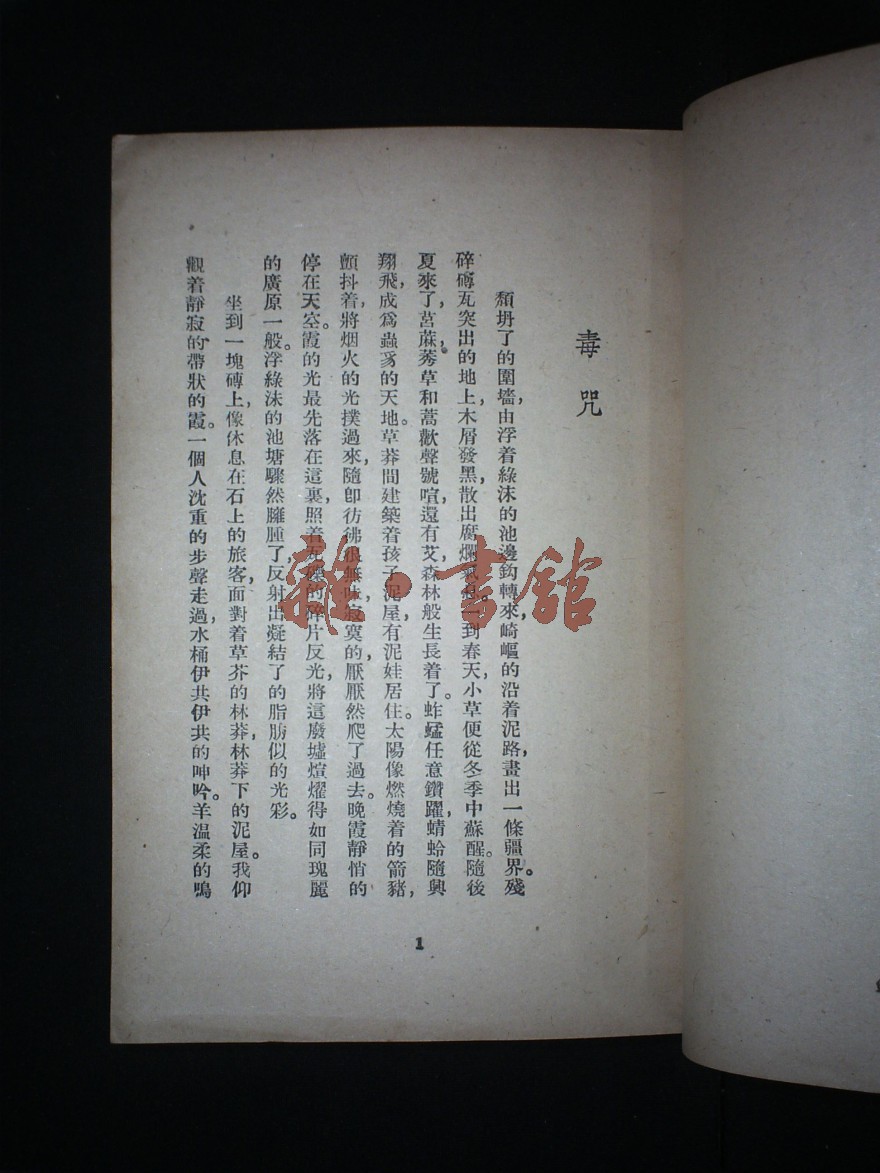 毒咒
頹坍了的圍墻，由浮着綠沫的池邊鈎轉來，崎嶇的沿着泥路，畫出一條疆界。殘
碎磚瓦突出的地上，木屑發黑，散出腐爛氣息。一到春天，小草便從冬季中蘇醒。隨後
夏來了，莒蔴，莠草和蒿歡聲號喧，還有艾森林般生長着了。蚱蜢任意鑽躍，蜻蛉隨興
翔飛，成爲蟲豸的天地。草莽間建築着孩子泥屋，有泥娃居住。太陽像燃燒着的箭豬，
顫抖着，將烟火的光撲過來，隨卽彷彿很無味，寂寞的，厭厭然爬了過去。晚霞靜悄的
停在天空。霞的光最先落在這裏，照着瓦礫的碎片反光，將這廢墟煊燿得如同瑰麗
的廣原一般。浮綠沫的池塘驟然臃腫了，反射出凝結了的脂肪似的光彩。
坐到一塊磚上，像休息在石上的旅客，面對着草芥的林莽，林莽下的泥屋。我仰
觀着靜寂的帶狀的霞。一個人沈重的步聲走過，水桶伊共伊共的呻吟。羊温柔的鳴
1
雜·書館